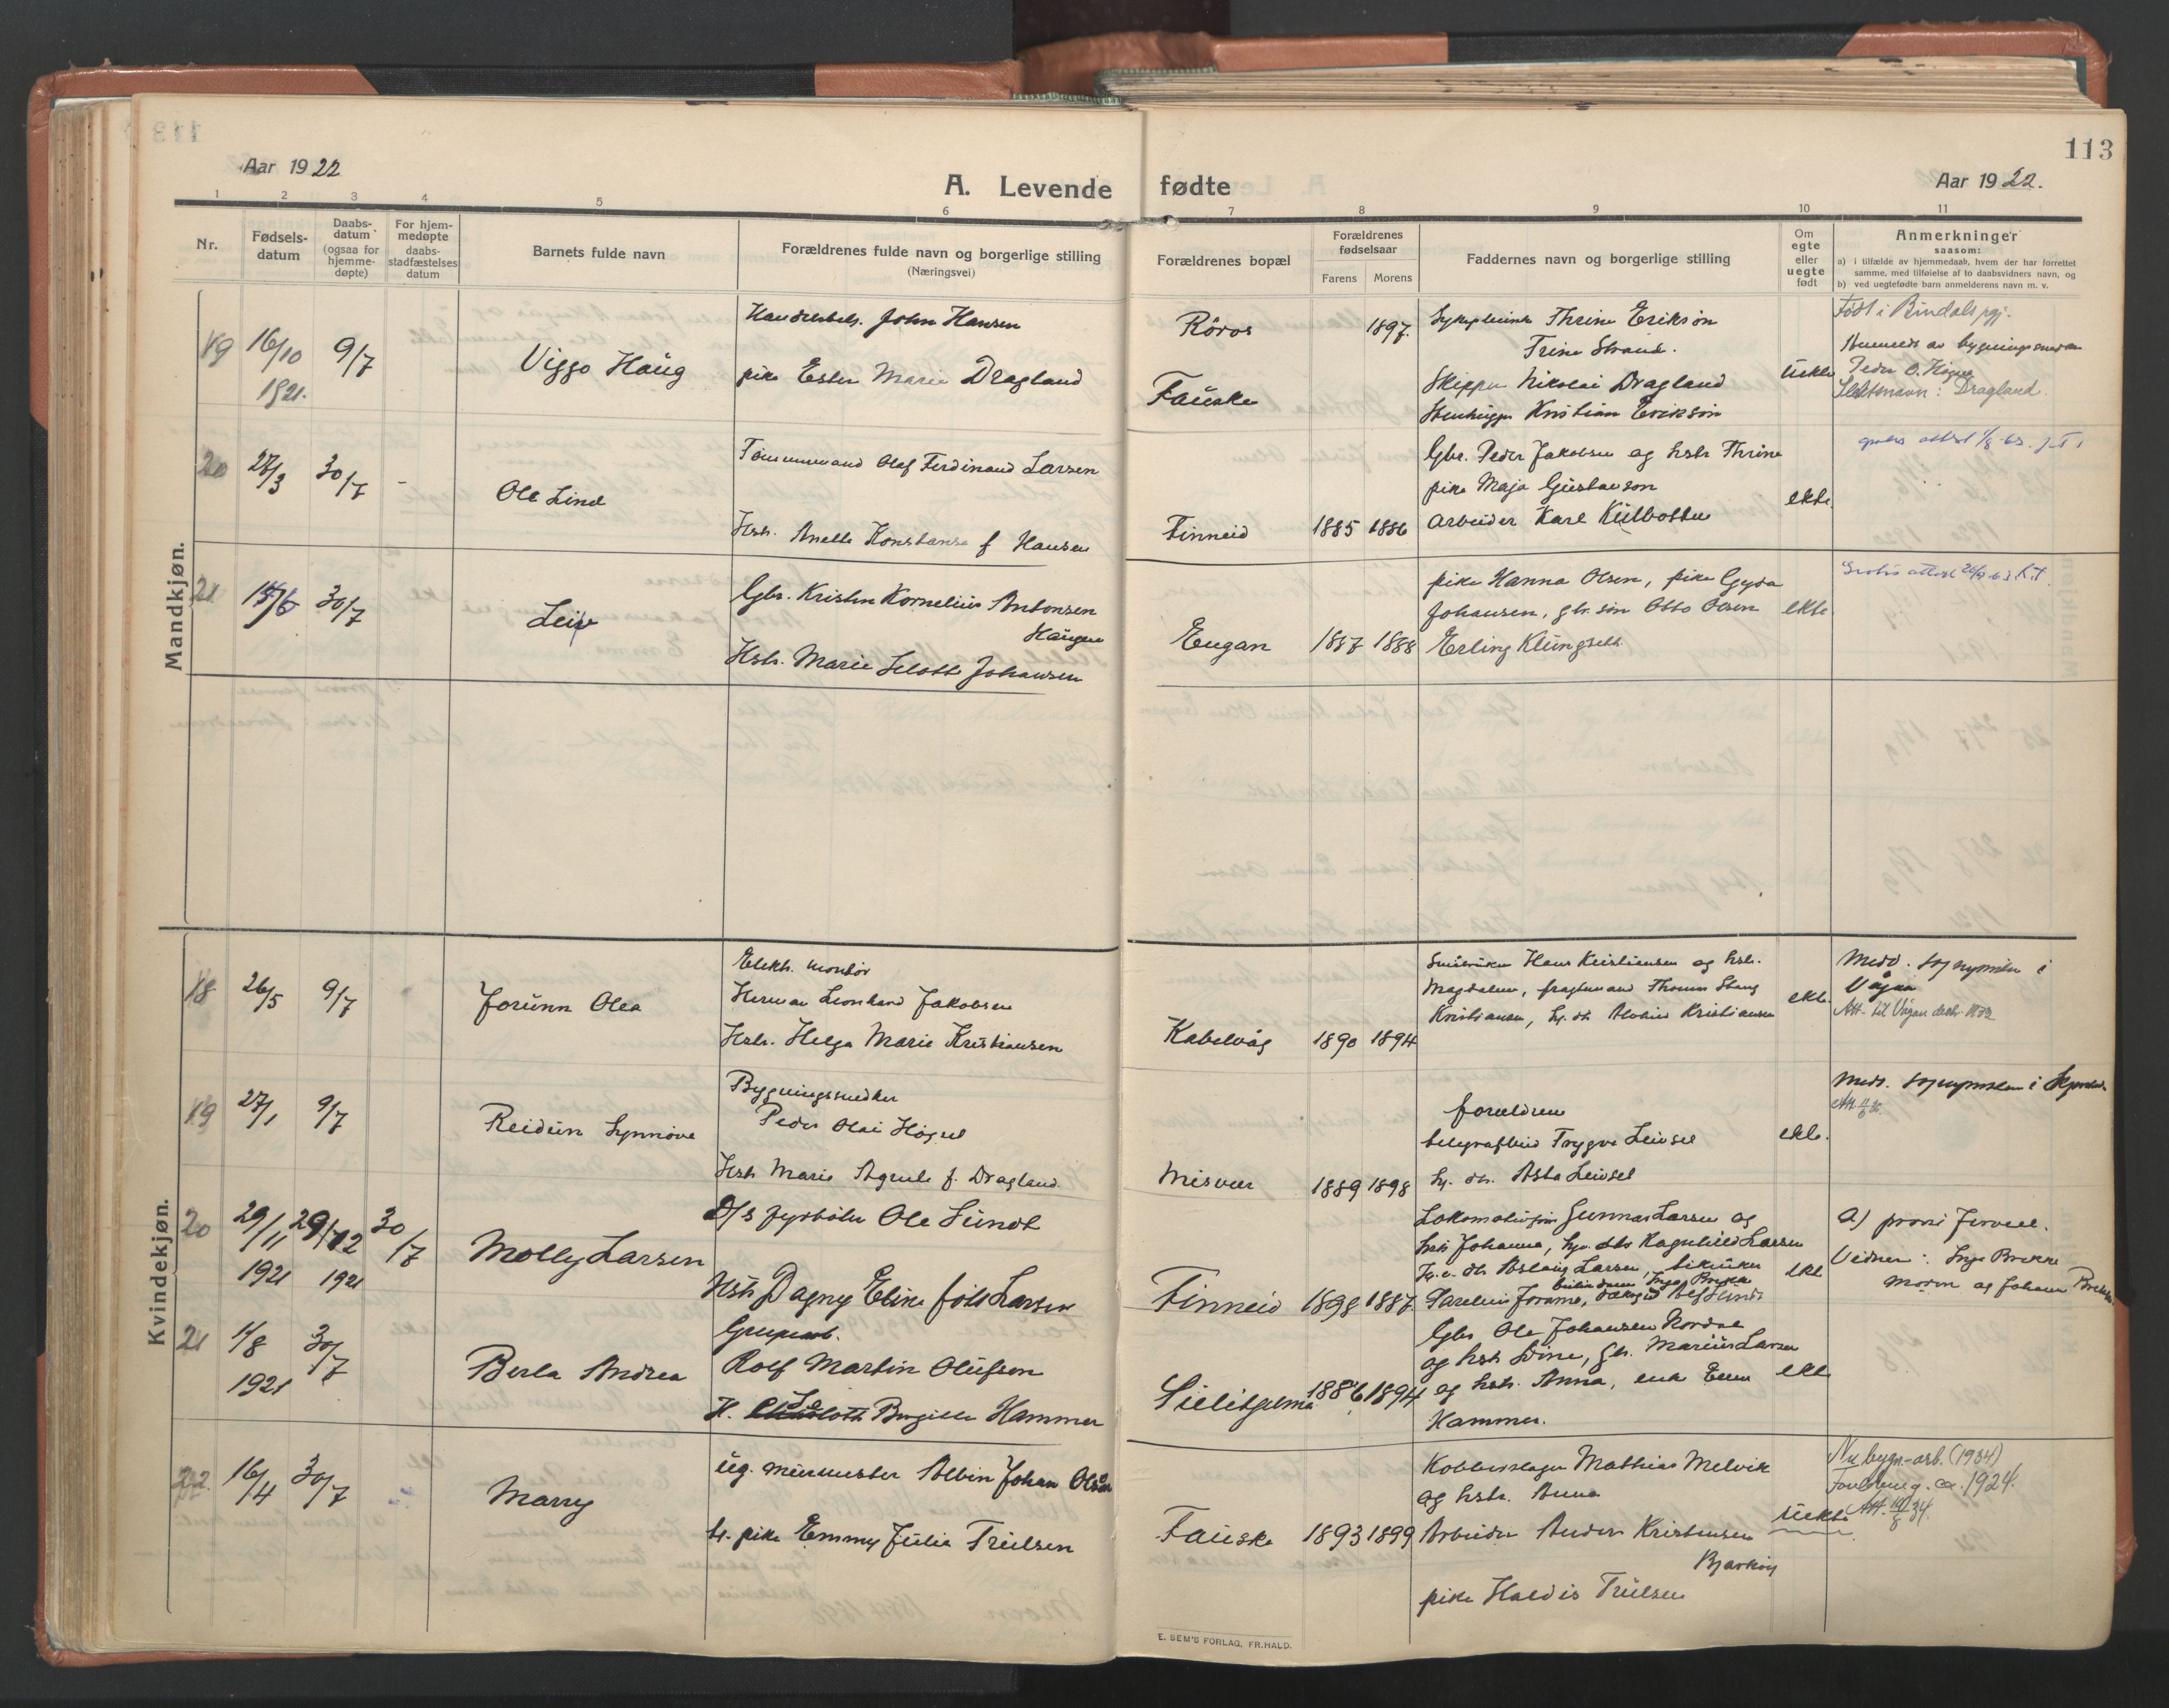 113
Aar 1922
Aar 1922.
A. Levende fødte
1 2 3 4 5 6 7 8 9 10 11
Nr.
Fødsels-
datum
Daabs-
datum
(ogsaa for
hjemme-
døpte)
For hjem-
medøpte
daabs-
stadfæstelses
datum
Barnets fulde navn
Forældrenes fulde navn og borgerlige stilling
(Næringsvei)
Forældrenes bopæl
Forældrenes
fødselsaar
Farens Morens
Faddernes navn og borgerlige stilling
Om
egte
eller
uegte
født
Anmerkninger
saasom:
a) i tilfælde av hjemmedaab, hvem der har forrettet
samme, med tilføielse af to daabsvidners navn, og
b) ved uegtefødte barn anmelderens navn m. v.
Mandkjøn.
19 16/10 9/7
1921.
Viggo Haug
John Hansen
pike Ester Marie Dragland
Röros
Fauske
1897.
Thrine Erikson
Trine Strand.
Skipper Nikolai Dragland
Kristian Erikson
uekte
Født i Bindals pgj.
Anmeldt av bygningssnedker
Peder O. Høgset
Slektsnavn: Dragland.
20 27/3 30/7 -
Ole Lind
Tømmermand Olaf Ferdinand Larsen
Hstr. Anette Konstanse f Hansen
Finneid 1885 1886
Gbr. Peder Jakobsen og hstr Thrine
pike Maja Gustavson
Arbeider Karl Kulbotten
ekte
21 15/6 30/7
Leiv
Gbr. Kristen Kornelius Antonsen
Haugen
Hstr. Marie Selotte Johansen
Engan 1887 1888
pike Hanna Olsen, pike Gyda
Johansen, gbr. søn Otto Olsen
Erling Klungseth
ekte
Kvindekjøn.
18 26/5 9/7
Jorunn Olea
Elektr. montør
Herman Leonhard Jakobsen
Hstr. Helga Marie Kristiansen
Kabelvåg 1890 1894
Hans Kristiansen og hstr.
Magdalena, fragtmand Thomas Stang
Kristiansen, Kristiansen
ekte.
Medd. sogneprsten i
Vågan
Att. til Vågan
19 27/1 9/7
Reidun Synnöve
Bygningssnedker
Peder Olai Høgset
Hstr Marie Agnete f. Dragland
Misvær 1889 1898
forældrene
telegrafbud Trygve Leivset
Asta Leivset
ekte.
Medd. sogneprsten i
20 29/11 29/12 30/7
1921 1921
Molly Larsen
D/s fyrbøter Ole Lundt
Hstr Dagny Elise født Larsen
Finneid 1898 1887
Gunnar Larsen og
hstr Johanna, Ragnhild Larsen
Aslaug Larsen,
Inga Brekke
ekte
a) provst Jervell.
Vidner: Inga Brekke
Moren og Johan Brekke
21 1/8 30/7
1921
Berla Andrea
Grubearb.
Rolf Martin Olufson
H. Birgitte Hammer
Sulitjelma 1886 1894
Gbr Ole Johansen Nordal
og hstr Dine, gbr. Marius Larsen
og hstr. Anna, enke
Hammer.
ekte
22. 16/4 30/7
Marry
ug. murmester Albin Johan Olsen
tj. pike Emmy Julie Trulsen
Fauske 1893 1899
Kobberslager Mathias Melvik
og hstr. Anna
Arbeider Anders Kristensen
Bjarkøy
pike Haldis Trulsen
uekte
Nu bygn-arb. (1934)
ca. 1924.
Att. 19/8 34.
E. SEM'S FORLAG, FR.HALD.